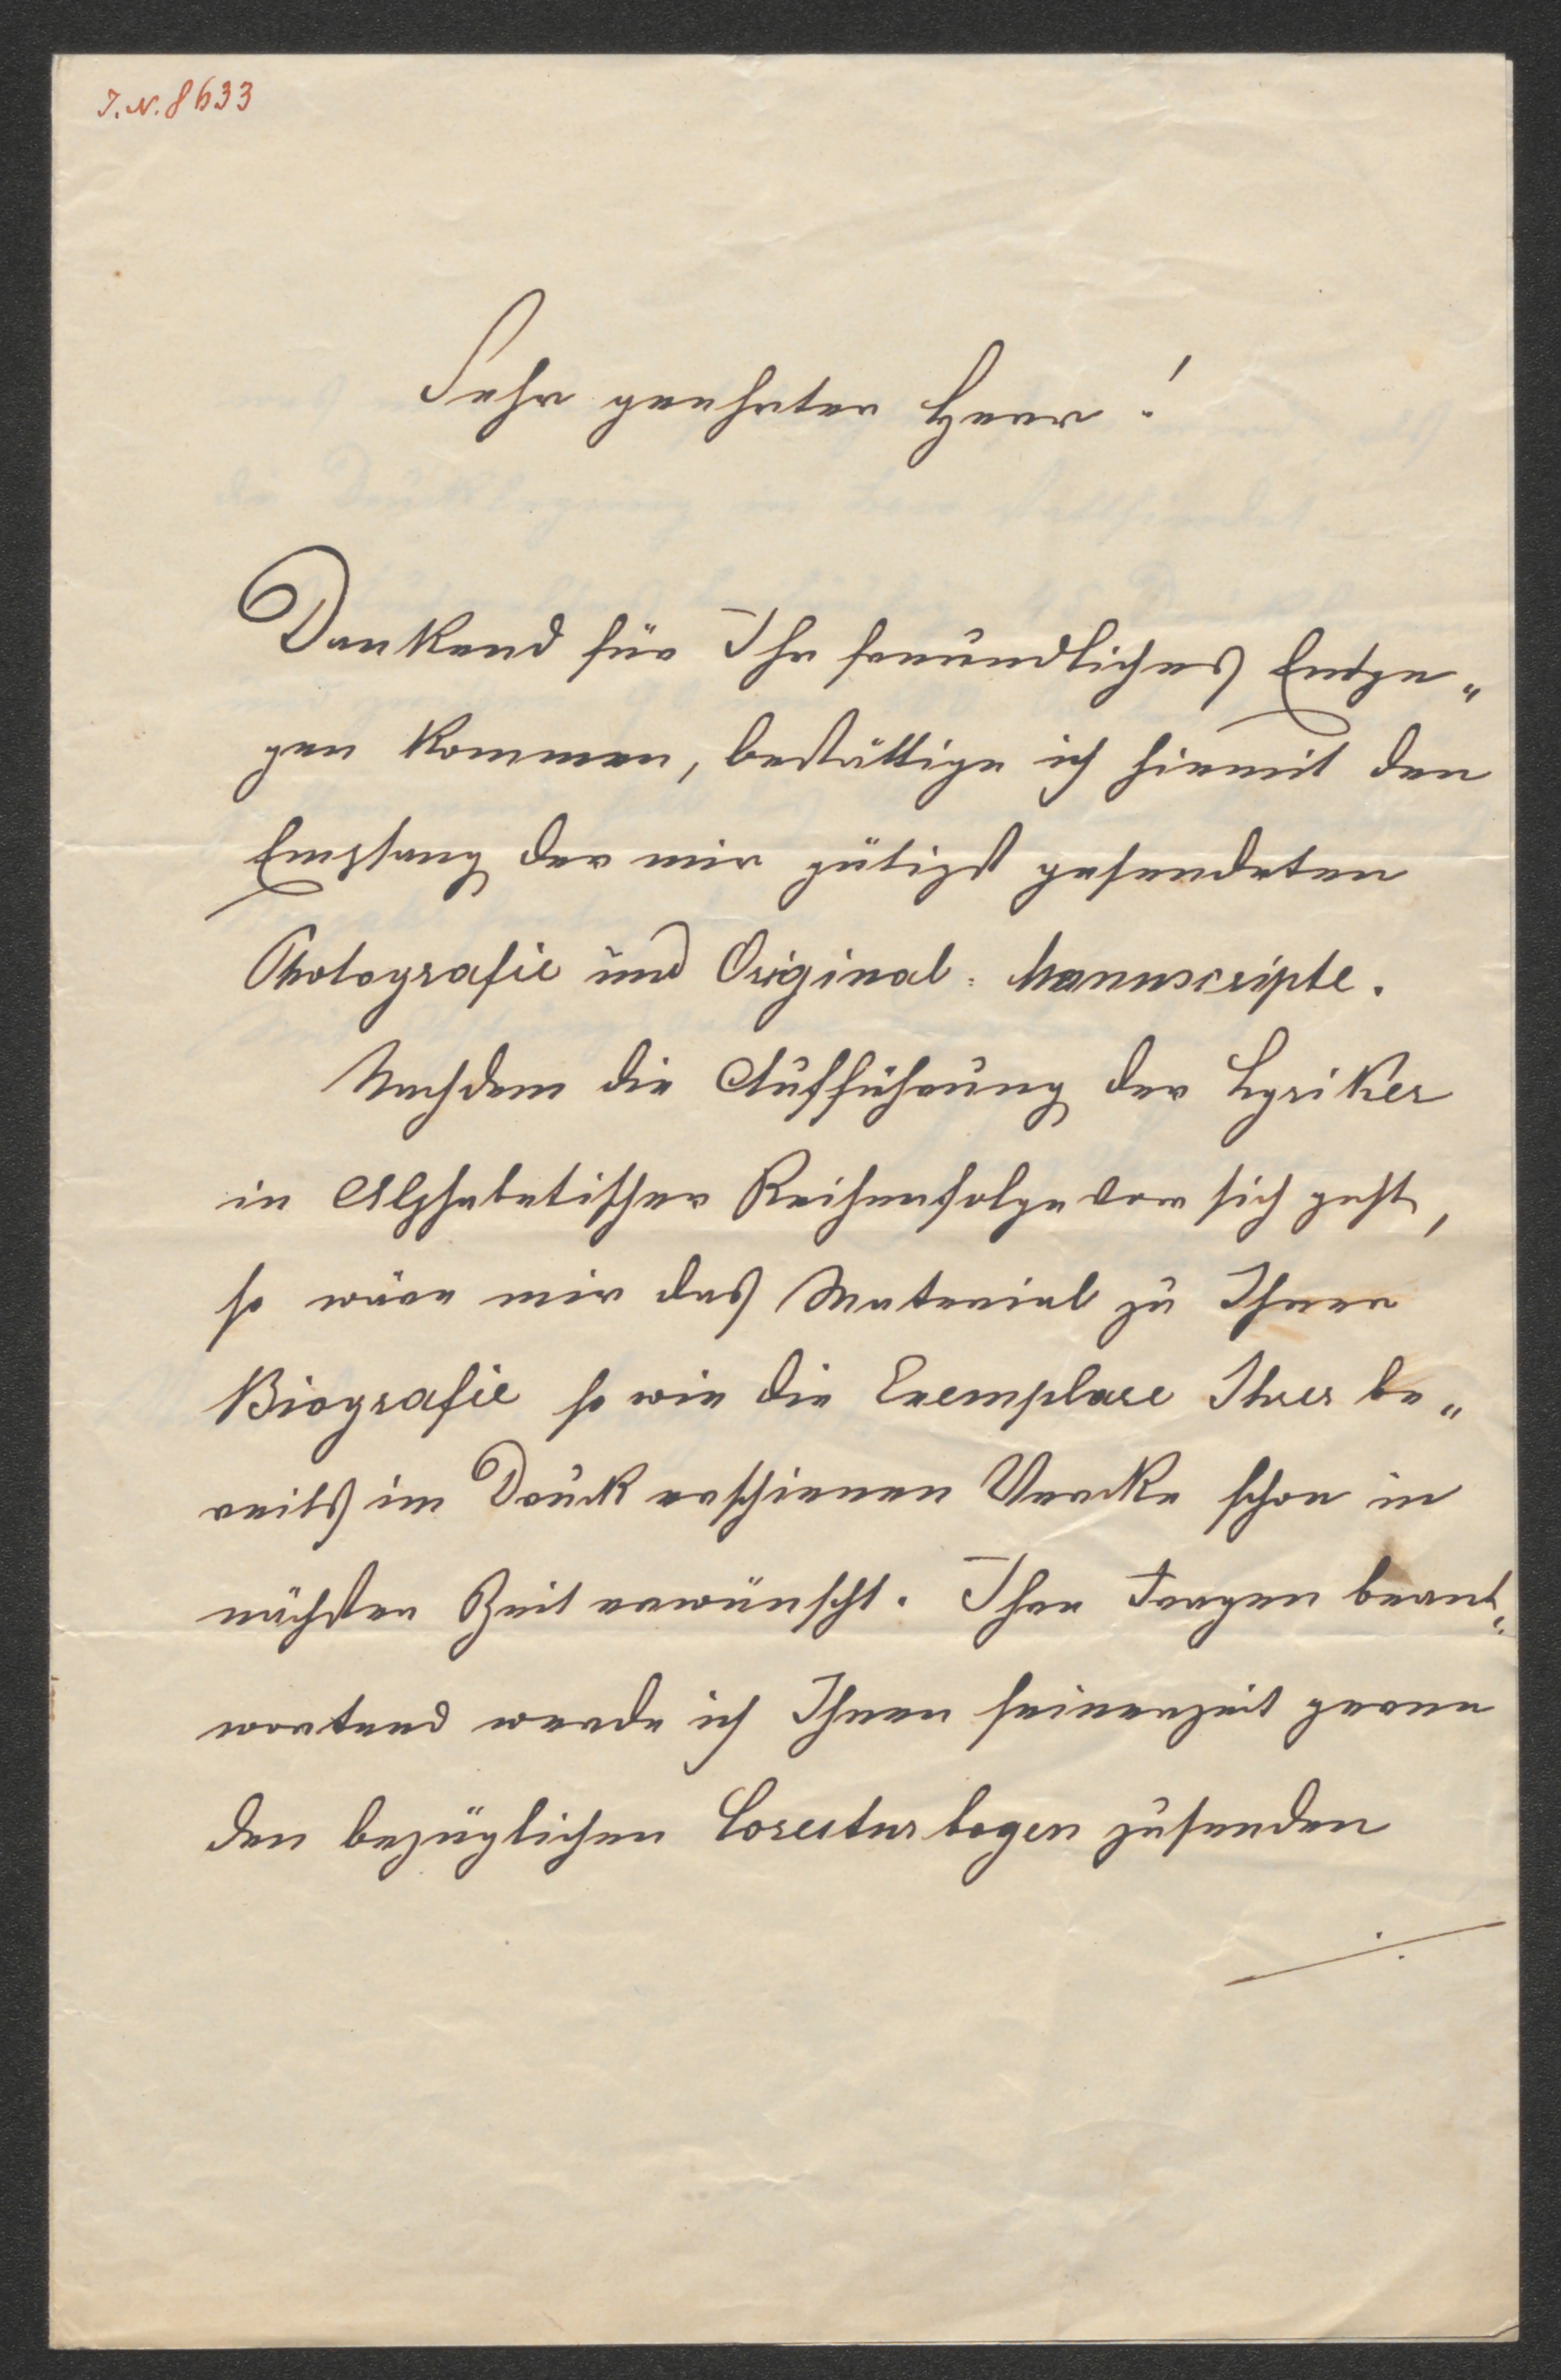 I.N. 8633
Sehr geehrter Herr!
Dankend für Ihr freundliches Entge„
gen kommen, bestättige ich hiemit den
Empfang der mir gütigst gesendeten
Photografie und Original-Manuscripte.
Nachdem die Aufführung der Lyriker
in Alphabetischer Reihenfolge vor sich geht,
so wäre mir das Material zu Ihrer
Biografie so wie die Exemplare Ihrer be„
reits im Druck erschienen Werke schon in
nächster Zeit erwünscht. Ihre Fragen beant„
wortend werde ich Ihnen seinerzeit gerne
den bezüglichen Corecturbogen zusenden
./.